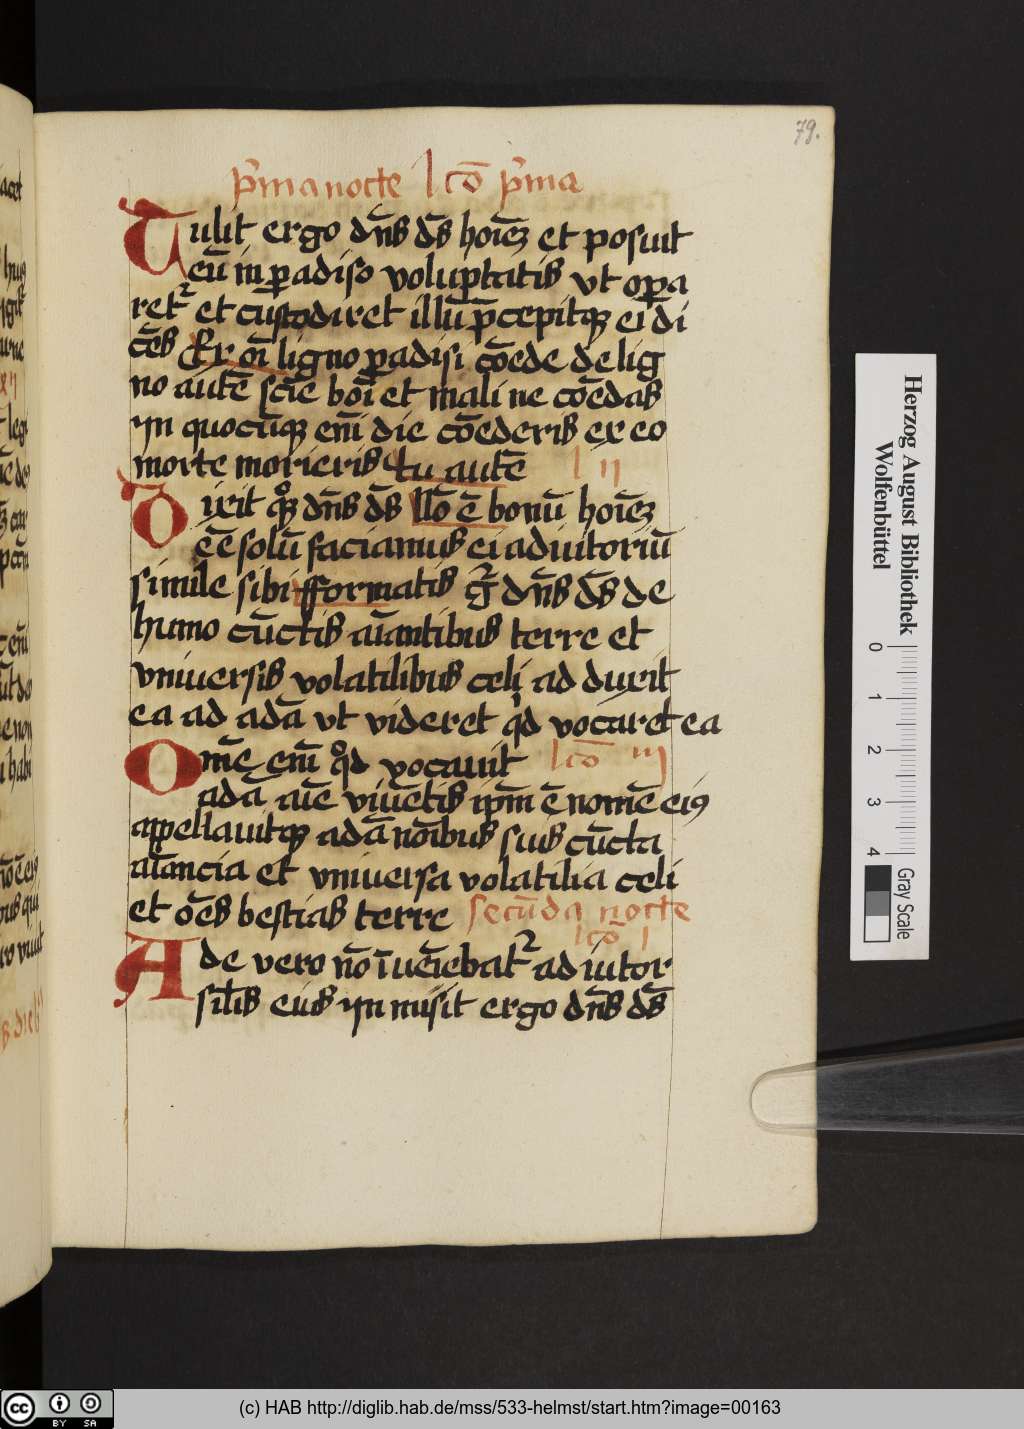 79.
p̄ma nocte lcō p̄ma
Tulit ergo dn̄s ds̄ hoīez et posuit
eū in ꝑadiso voluptatis vt oꝑa
retᷣ et cūstodiret illū p̄cepitqꝫ ei di
cēs Ex oī ligno ꝑadisi cōede de lig
no autē scīe boī et mali ne cōedas
in quocūqꝫ em̄ die cōederis ex eo
morte morieris tu autē l ii
Dixit qꝫ dn̄s ds̄ llō ē bonū hoīez
eē solū faciamus ei adiutoriū
simile sibi fformatis gᷣ dn̄s ds̄ de
humo cūctis aīantibus terre et
vniuersis volatilibus celi adduxit
ea ad adā vt videret qͥd vocaret ea
Om̄e em̄ qͦd vocauit lcō iii
adā aīe viuētis ip̄m ē nomē eiꝰ
appellauitqꝫ adā noībus suis cūcta
aīancia et vniuersa volatilia celi
et oēs bestias terre secūda nocte
lcō i
Ade vero nō īueīebatᷣ adiutor
sil̄is eius in misit ergo dn̄s ds̄
Herzog August Bibliothek
Wolfenbüttel
0 1 2 3 4
Gray Scale
(c) HAB http://diglib.hab.de/mss/533-helmst/start.htm?image=00163
CC BY SA